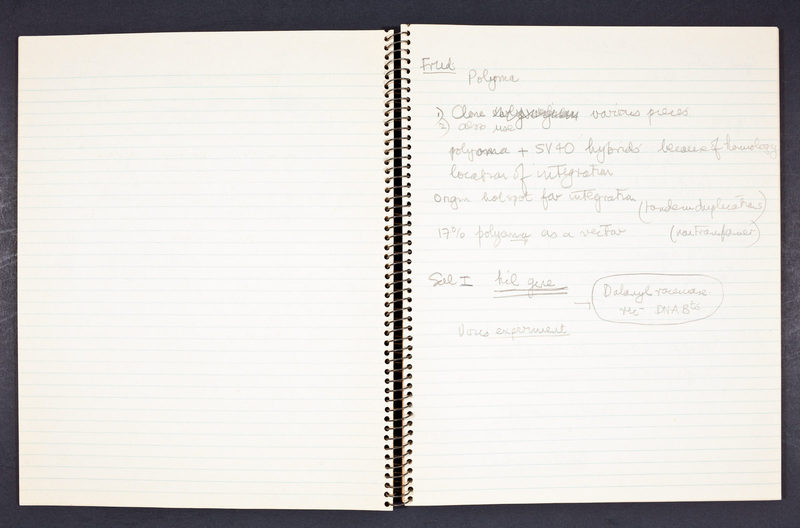 Fried
Polyoma
1) Clone various pieces
2) also use
polyoma + SV40 hybrids because of homology
location of integration
Origin hotspot for integration (tandem duplications)
17% polyoma as a vector (nontransformer)
Sal I hil gene
D alanyl racemase
rec- DNA Bts
Voris experiment